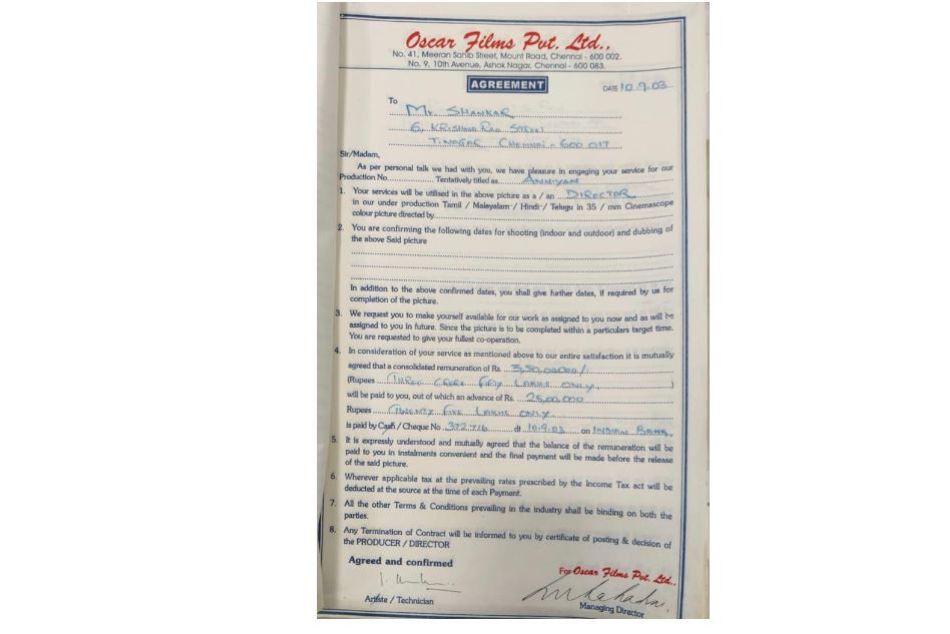 Oscar Films Pvt. Ltd.,
No. 41, Meeran Sahib Street, Mount Road, Chennai - 600 002.
No. 9, 10th Avenue, Ashok Nagar, Chennai - 600 083.
AGREEMENT
DATE 10.9.03
To
Mr. SHANKAR
6, KRISHNA RAO STREET
T. NAGAR CHENNAI - 600 017
Sir/Madam,
As per personal talk we had with you, we have pleasure in engaging your service for our
Production No.............. Tentatively titled as...... ANNIYAN
1. Your services will be utilised in the above picture as a / an ... DIRECTOR
in our under production Tamil / Malayalam / Hindi / Telugu in 35 / mm Cinemascope
colour picture directed by
2. You are confirming the following dates for shooting (indoor and outdoor) and dubbing of
the above Said picture
In addition to the above confirmed dates, you shall give further dates, if required by us for
completion of the picture.
3. We request you to make yourself available for our work as assigned to you now and as will be
assigned to you in future. Since the picture is to be completed within a particulars target time.
You are requested to give your fullest co-operation.
4. In consideration of your service as mentioned above to our entire satisfaction it is mutually
agreed that a consolidated remuneration of Rs. 3,50,00000/.
(Rupees THREE CRORE FIFTY LAKHS ONLY. )
will be paid to you, out of which an advance of Rs. 25,00,000
Rupees TWENTY FIVE LAKHS ONLY.
is paid by Cash / Cheque No. 372716 dt 10.9.03 on INDIAN BANK.
5. It is expressly understood and mutually agreed that the balance of the remuneration will be
paid to you in instalments convenient and the final payment will be made before the release
of the said picture.
6. Wherever applicable tax at the prevailing rates prescribed by the Income Tax act will be
deducted at the source at the time of each Payment.
7. All the other Terms & Conditions prevailing in the industry shall be binding on both the
parties.
8. Any Termination of Contract will be informed to you by certificate of posting & decision of
the PRODUCER / DIRECTOR
Agreed and confirmed
For Oscar Films Pvt. Ltd.,
Artiste / Technician
Managing Director